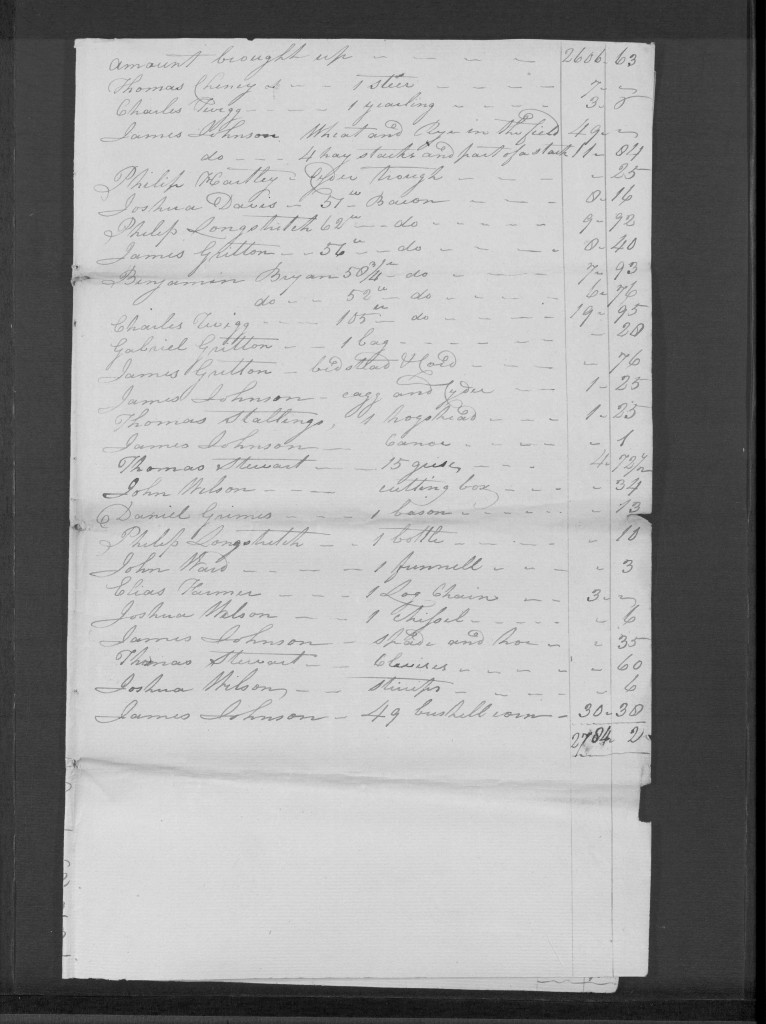 amount brought up - - - - 2606. 63
Thomas Cheney - - 1 steer - - - - 7 - "
Charles Twigg - - - - 1 yearling - - - - 3 -
James Johnson Wheat and Rye in the field 49 - "
do - - - 4 hay stacks and part of a stack 11 - 04
Philip Hartley - Cyder trough - - - - " 25
Joshua Davis - 51 lb Bacon - - - - 8 - 16
Philip Longstretch 62 lb - do - - - - 9 - 92
James Gritton - - 56 lb - do - - - - 8 - 40
Benjamin Bryan 58 3/4 lb do - - - - 7 - 93
do - - 52 lb - do - - - - 6 - 76
Charles Twigg - - - - 105 lb - do - - - - 19 - 95
Gabriel Gritton - - 1 bag - - - - - 20
James Gritton - bedstead & Cord - - - - " 76
James Johnson - cagg and Cyder - - 1 - 25
Thomas Stallings, 1 hogshead - - - 1 - 25
James Johnson - - Canoe - - - - " 1
Thomas Stewart - - 15 geese, - - - 4 - 72 1/2
John Wilson - - - - cutting box - - - " 34
Daniel Grimes - - - 1 bason - - - - " 13
Philip Longstretch - - 1 bottle - - - - " 10
John Ward - - - - - 1 funnell - - - " 3
Elias Farmer - - - 1 Log Chain - - 3 - "
Joshua Wilson - - 1 Thissel - - - - " 6
James Johnson - spade and hoe - - " 35
Thomas Stewart - - Clevises - - - - " 60
Joshua Wilson - - stirrups - - - - " 6
James Johnson - 49 bushell corn - 30 - 38
2784 2